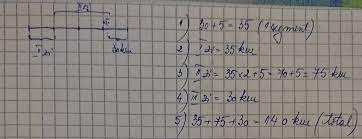 II zi
5
III zi
30km
1) 30+5 = 35 (1 segment)
2) I zi = 35 km
3) II zi = 35 x 2 + 5 = 70+5 = 75 km
4) III zi = 30 km
5) 35 + 75 + 30 = 140 km (total)